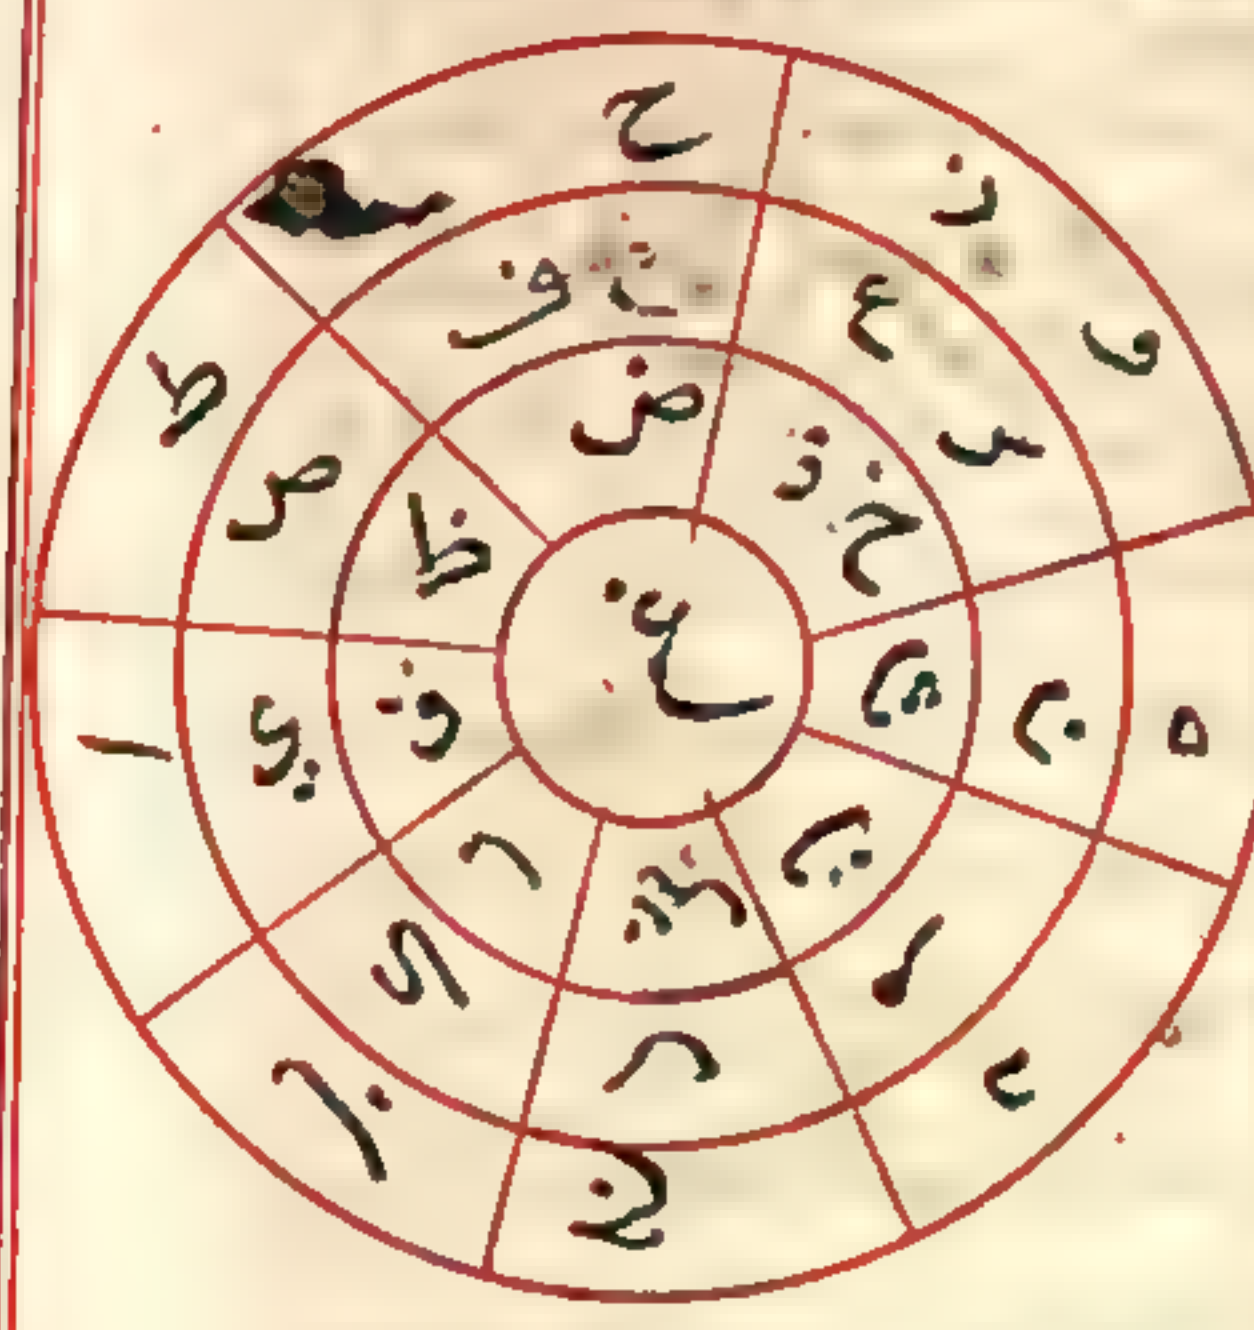 ا
ب
ج
د
ه
و
ز
ح
ط
ي
ك
ل
م
ن
س
ع
ف
ص
ق
ر
ش
ت
ث
خ
ذ
ض
ظ
غ